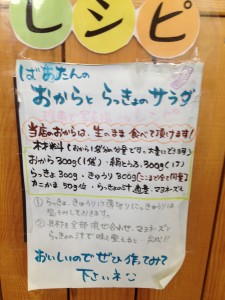 レシピ
ばあたんの
おからと らっきょのサラダ
当店のおからは、生のまま食べて頂けます!
材料(おから1袋分の分量です。大量にできます)
おから300g(1袋)・絹とうふ300g(1丁)
らっきょ300g・きゅうり300g(ここまで全て同量)
カニかま50g位・らっきょの汁適量・マヨネーズ
① らっきょ、きゅうりは薄切りに。きゅうりは
塩もみしておきます。
② 具材を全部混ぜ合わせ、マヨネーズと
らっきょの汁で味を整えると
おいしいのでぜひ作ってみて
下さいネ